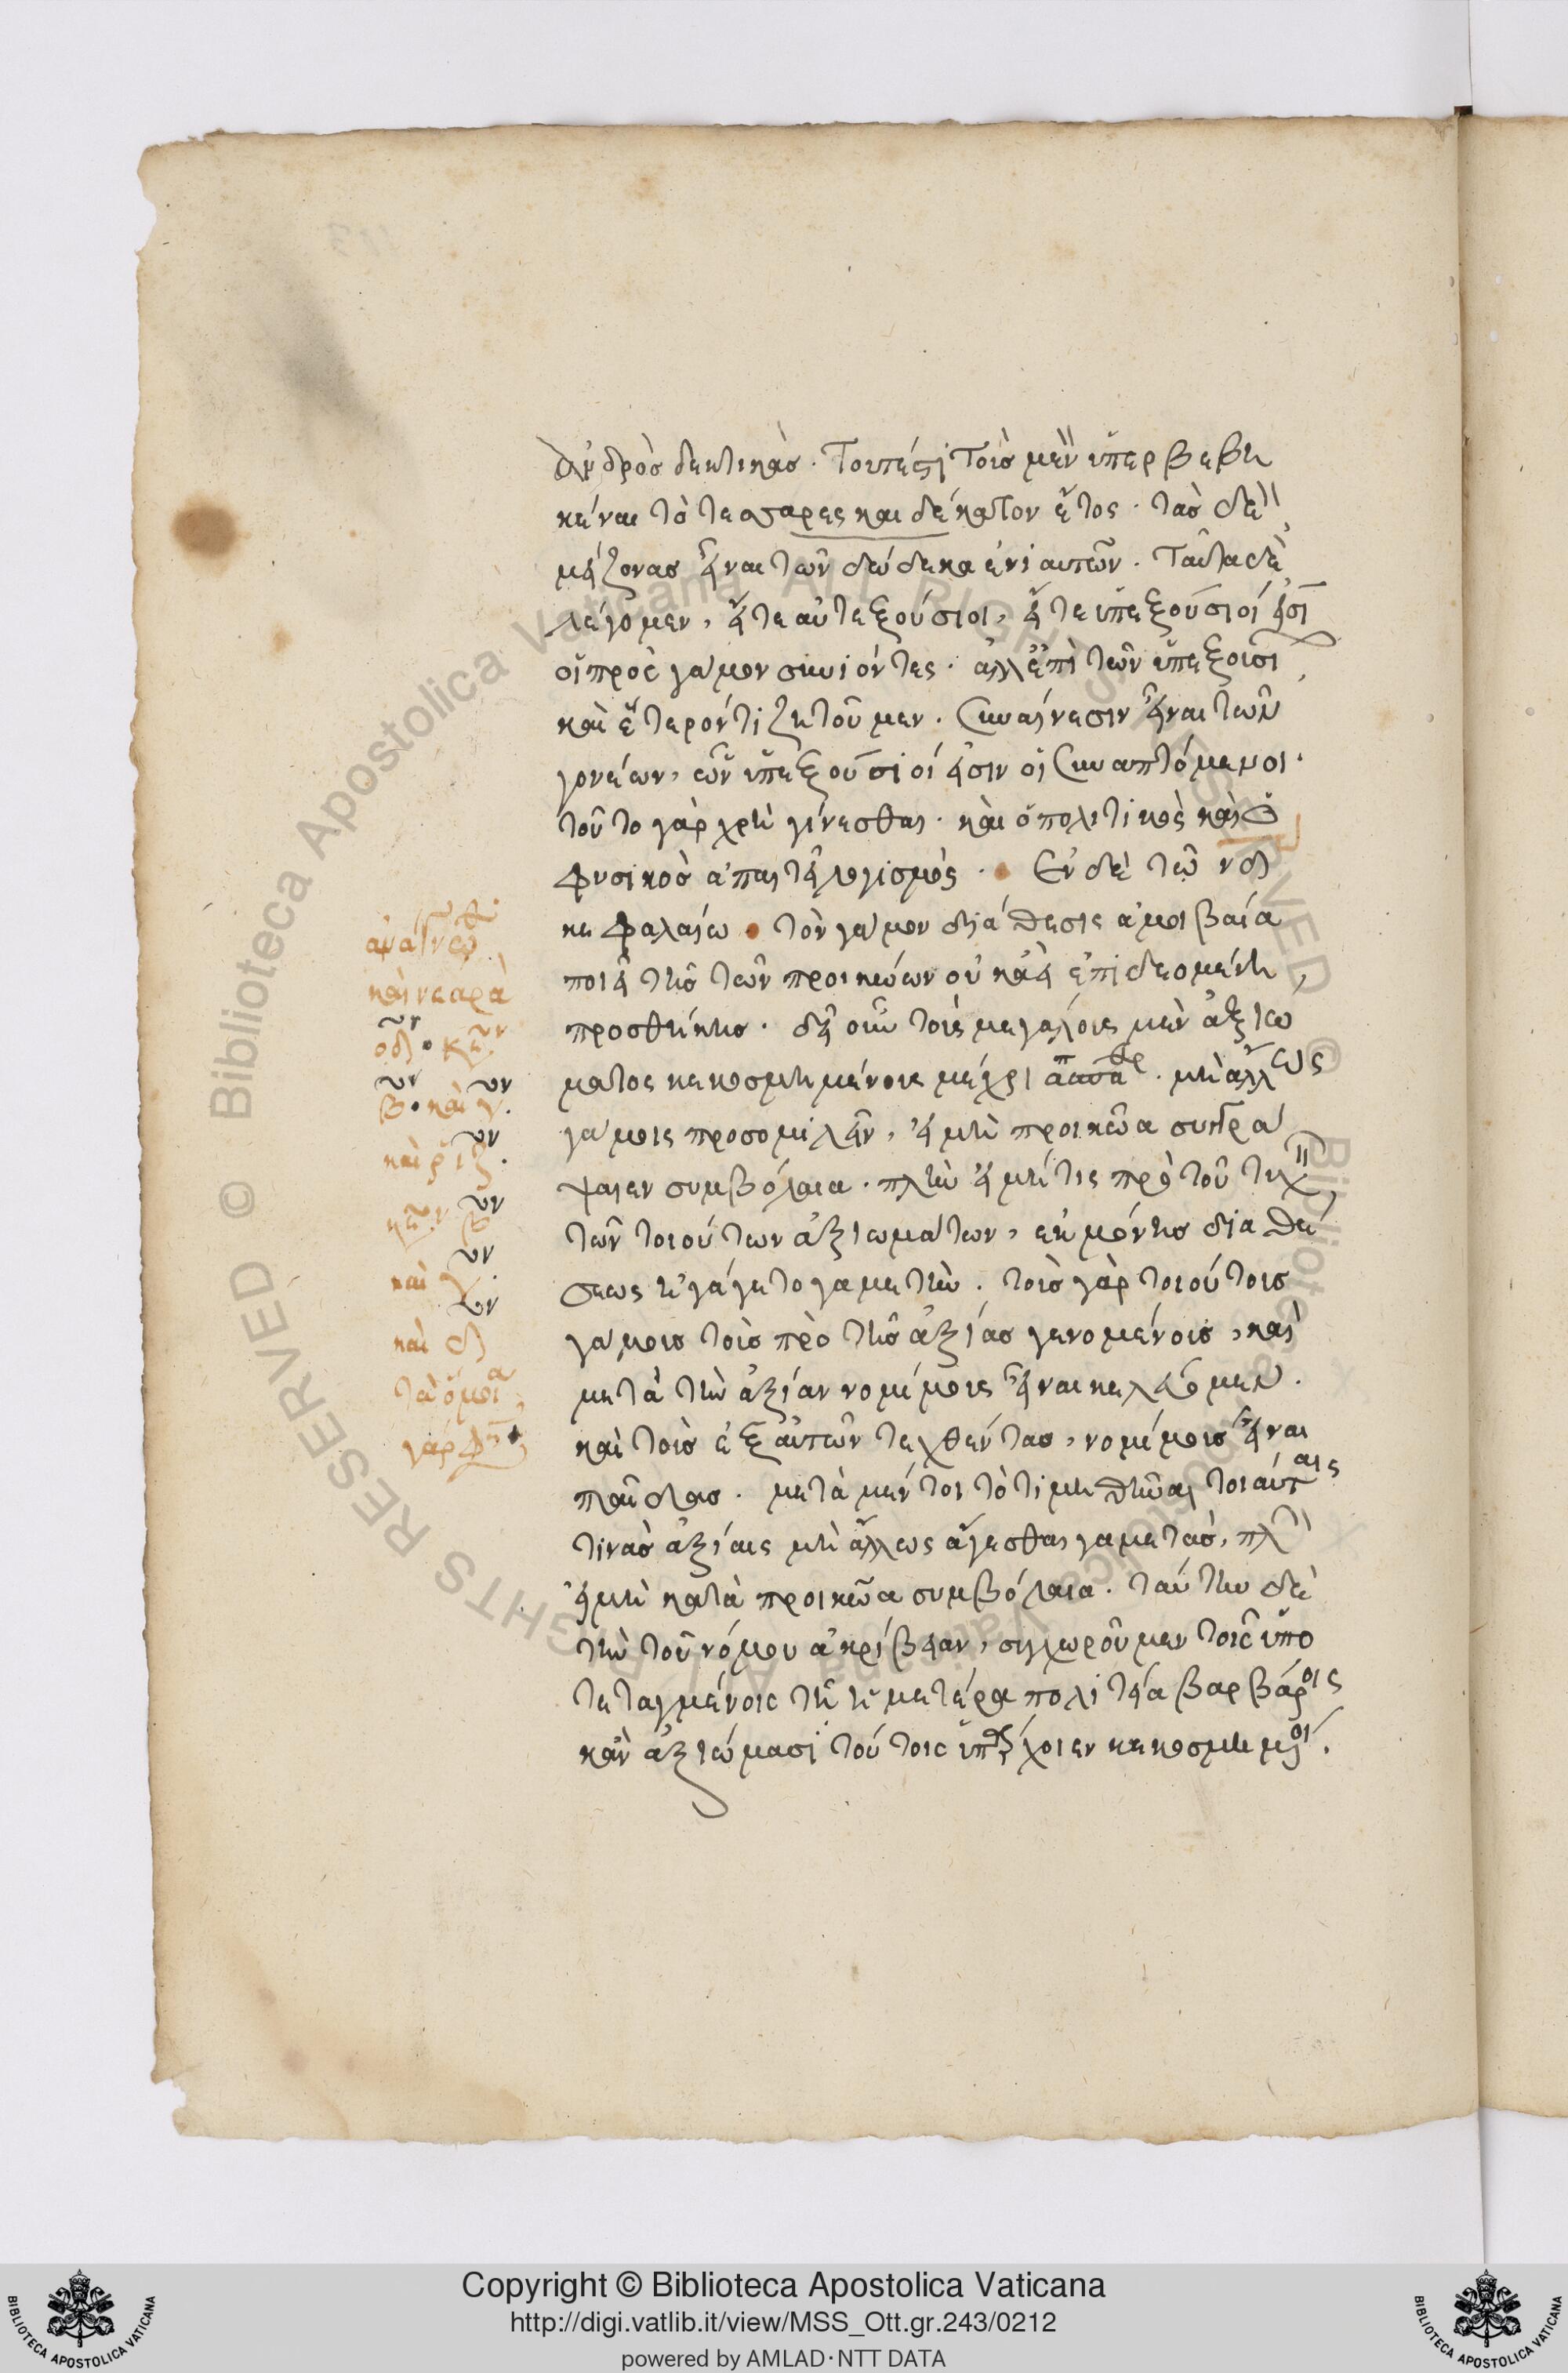 ἀνδρὸς δεκτικὰς. Τουτέστι τοὺς μὲν ὑπερβεβη
κέναι τὸ τεσσαρες και δέκατον ἔτος. τὰς δὲ
μείζονας εἶναι τῶν δώδεκα ἐνιαυτῶν. Ταῦτα δὲ
λέγομεν, εἴτε αὐτεξούσιοι, εἴτε ὑπεξούσιοί εἰσι
οἱ πρὸς γάμον συνιόντες. ἀλλ' ἐπὶ τῶν ὑπεξουσί
καὶ ἕτερόν τι ζητοῦμεν. συναίνεσιν εἶναι τῶν
γονέων, ὧν ὑπεξούσιοί εἰσιν οἱ συναπτόμενοι.
τοῦτο γὰρ χρὴ γίνεσθαι. καὶ ὁ πολιτικὸς καὶ ὁ
φυσικὸς ἀπαιτεῖ λογισμός. Ἐν δὲ τῶ νδ
κεφαλαίω. τὸν γάμον διάθεσις ἀμοιβαία
ποιεῖ τῆς τῶν προικώων οὐκ ἀεὶ ἐπιδεομένη
προσθήκης. δεῖ οὖν τοὺς μεγάλοις μὲν ἀξιώ
ματος κεκοσμημένοις μέχρι . μὴ ἄλλως
γάμοις προσομιλεῖν, εἰ μὴ προικῶα συγγρά
ψαιεν συμβόλαια. πλὴν εἰ μή τις πρὸ τοῦ τυχ
τῶν τοιούτων ἀξιωμάτων, ἐκ μόνης διαθέ
σεως ἠγάγετο γαμετὴν. τοὺς γὰρ τοιούτους
γάμους τοὺς πρὸ τῆς ἀξίας γενομένους, καὶ
μετὰ τὴν ἀξίαν νομίμους εἶναι κελεύομεν.
καὶ τοὺς ἐξ αὐτῶν τεχθέντας, νομίμους εἶναι
παῖδας. μετὰ μέντοι τὸ τιμηθῆναι τοιαύταις
τινὰς ἀξίαις μὴ ἄλλως ἄγεσθαι γαμετάς, πλ
εἰ μὴ κατὰ προικῶα συμβόλαια. ταύτην δὲ
τὴν τοῦ νόμου ἀκρίβειαν, συγχωροῦμεν τοῖς ὑπο
τεταγμένοις τῆ ἡμετέρα πολιτεία βαρβάροις
κἂν ἀξιώμασι τούτοις ὑπάρχοιεν κεκοσμημένοι.
καὶ νεαρὰ
καὶ
καὶ
καὶ δ
τὰ ὅμοια
Copyright © Biblioteca Apostolica Vaticana
http://digi.vatlib.it/view/MSS_Ott.gr.243/0212
powered by AMLAD·NTT DATA